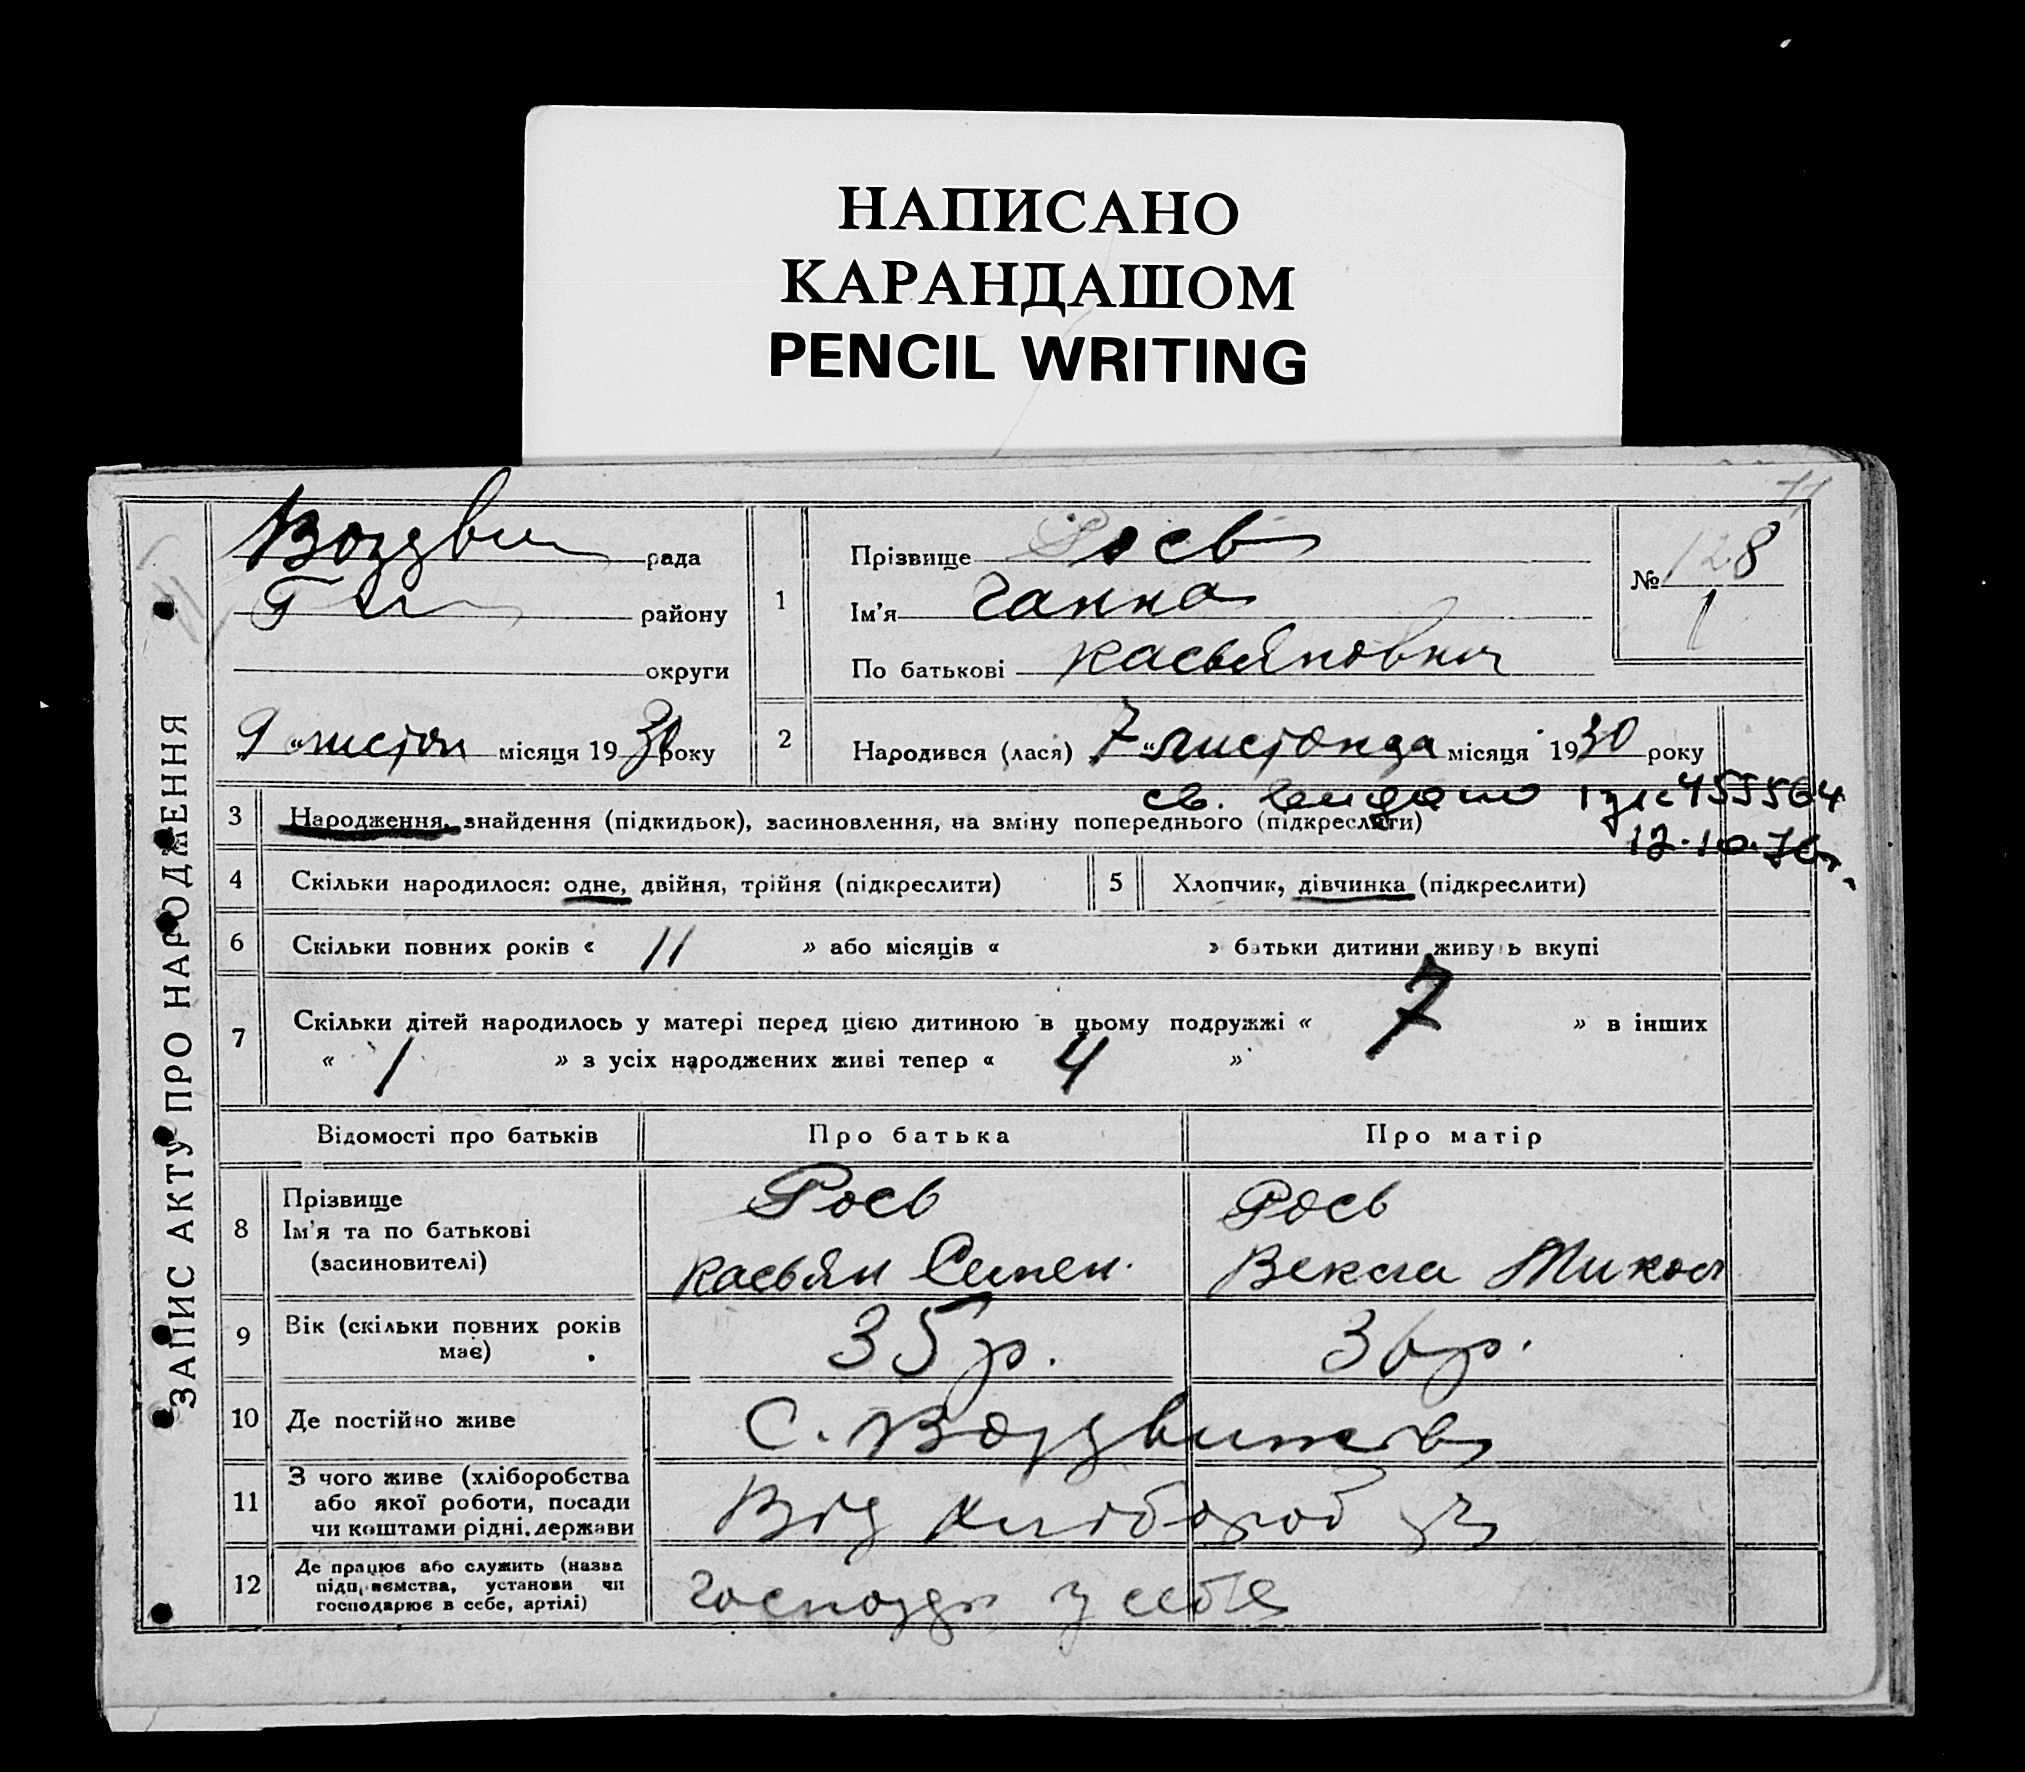 НАПИСАНО
КАРАНДАШОМ
PENCIL WRITING
77
ЗАПИС АКТУ ПРО НАРОДЖЕННЯ
Воздви рада
району
округи
9 "листоп місяця 1930 року
1
Прізвище Рось
Ім'я Ганна
По батькові Касьяновна
№ 128
1
2 Народився (лася) 7 "листопада місяця 1930 року
св. видано 455564
12.10.76г.
3 Народження, знайдення (підкидьок), засиновлення, на зміну попереднього (підкреслити)
4 Скільки народилося: одне, двійня, трійня (підкреслити)
5 Хлопчик, дівчинка (підкреслити)
6 Скільки повних років « 11 » або місяців « » батьки дитини живуть вкупі
7 Скільки дітей народилось у матері перед цією дитиною в цьому подружжі « 7 » в інших
« 1 » з усіх народжених живі тепер « 4 »
Відомості про батьків Про батька Про матір
8 Прізвище
Ім'я та по батькові
(засиновителі)
Рось
Касьян Семен.
Рось
Векла Микол
9 Вік (скільки повних років
має)
35 р.
36 р.
10 Де постійно живе
С. Воздвиженськ
11 З чого живе (хліборобства
або якої роботи, посади
чи коштами рідні, держави
Від хлібороб
12 Де працює або служить (назва
підприємства, установи чи
господарює в себе, артілі)
господ у себе